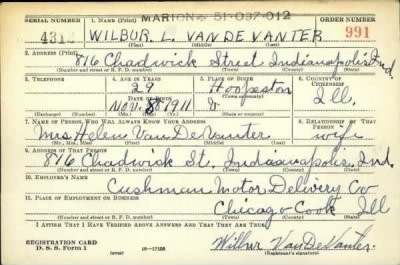 MARION 51-097-012
SERIAL NUMBER 1. NAME (Print) ORDER NUMBER
WILBUR. L. VAN DE VANTER 991
(First) (Middle) (Last)
2. ADDRESS (Print)
816 Chadwick Street Indianapolis Ind
(Number and street or R. F. D. number) (Town) (County) (State)
3. TELEPHONE 4. AGE IN YEARS 5. PLACE OF BIRTH 6. COUNTRY OF CITIZENSHIP
29 Hoopeston
DATE OF BIRTH (Town or county)
Nov. 8 1911 Ill.
(Exchange) (No.) (Mo.) (Day) (Yr.) (State or country)
7. NAME OF PERSON WHO WILL ALWAYS KNOW YOUR ADDRESS 8. RELATIONSHIP OF THAT PERSON
Mrs Helene Van DeVanter wife
(Mr., Mrs., Miss) (First) (Middle) (Last)
9. ADDRESS OF THAT PERSON
816 Chadwick St. Indianapolis, Ind.
(Number and street or R. F. D. number) (Town) (County) (State)
10. EMPLOYER'S NAME
Cushman Motor Delivery Co
11. PLACE OF EMPLOYMENT OR BUSINESS
Chicago Cook Ill
(Number and street or R. F. D. number) (Town) (County) (State)
I AFFIRM THAT I HAVE VERIFIED ABOVE ANSWERS AND THAT THEY ARE TRUE.
REGISTRATION CARD
D. S. S. Form 1 (over) 16-17105 Wilbur VanDeVanter.
(Registrant's signature)